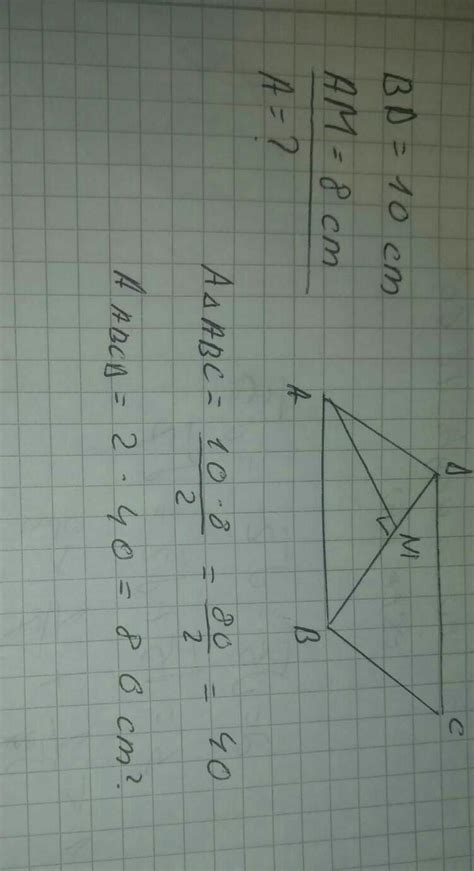 BD = 10 cm
AM = 8 cm
A = ?
D
M
C
A
B
A△ABC = 10 · 8 / 2 = 80 / 2 = 40
A ABCD = 2 · 40 = 80 cm².